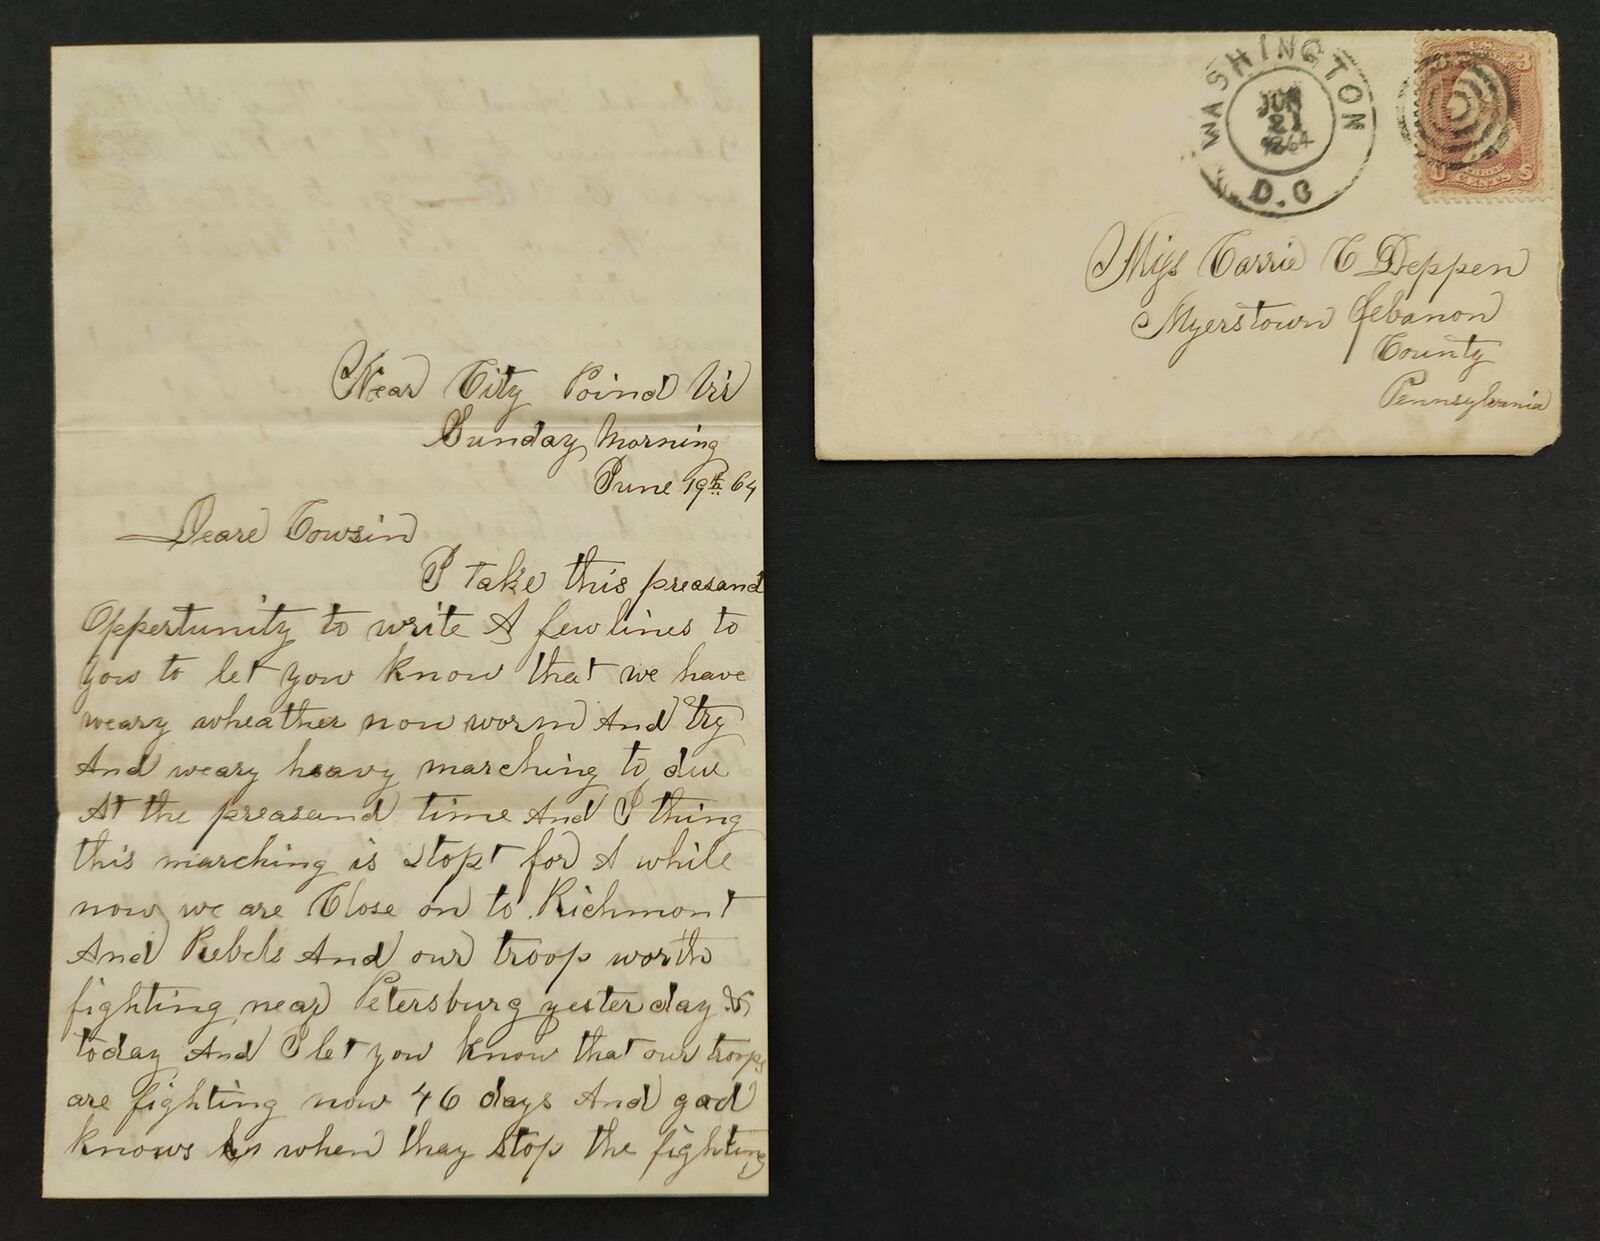 Near City Poind Vir
Sunday Morning
June 19th 64
Deare Cowsin
I take this preasand
Oppertunity to write A few lines to
you to let you know that we have
weary wheather now worm And try
And weary heavy marching to due
At the preasand time And I thing
this marching is stopt for A while
now we are Close on to Richmont
And Rebels And our troop worth
fighting near Petersburg yesterday &
today And I let you know that our troops
are fighting now 46 days And gad
knows when thay stop the fighting
WASHINGTON
D.C
JUN
21
1864
3
U S
CENTS
Miss Carrie C Deppen
Myerstown Lebanon
County
Pennsylvania